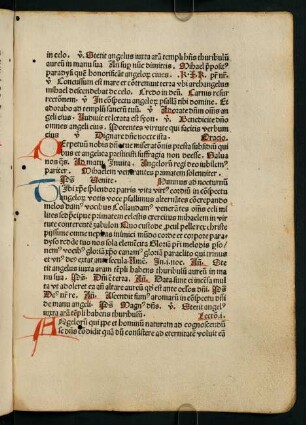 in celo. v. Stetit angelus iuxta arã templi hñs thuribulũ
aureũ in manu sua An sup nũc dimitis. Mihael ppose
paradysi quẽ honorificãt angelorũ ciues. K.I.K. pr nr
v Concussum est mare et cotremuit terra vbi archangelus
mihael descendebat de celo. Credo in deũ. Carnis resur
rectionem. v In cõspectu angelorũ psallã tibi domine.
Et adorabo ad templũ sanctũ tuũ v Adorate dñm oẽs an
geli eius Audiuit et letata est syon v Benedicite dño
omnes angeli eius Potentes virtute qui facitis verbum
eius v Dignare dñe nocte ista Oracio.
Perpetuũ nobis dñe tue miseratõnis presta subsidiũ qui
bus et angelica prestitisti suffragia non deesse Salua
nos Ad mat. Inuita. Angelorũ regẽ deo iubilem
pariter Mihaelem venerantes panamus solemniter.
Ps Venite. Hymnus ad nocturnũ
Tibi xpe splendor patris vita virtus cordiũ in cõspectu
angelorũ votis voce psallimus alternãtes concrepando
melos damus vocibus Collaudam⁹ venerãtes oẽs celi mi
lites sed precipue primatem celestis exercitus mihaelem in virtu
te conterentem zabulon Quo custode procul pelle rex christe
piissime omne nephas inimici mũdo corde et corpore para
dyso redde tuo nos sola clementia Gloriã pr̃i melodis pso
nem⁹ vocib⁹ gloriã xpo canam⁹ gloriã paraclito qui trinus
et vn⁹ de⁹ extat ante secula Amẽ. In .i. noc. Añ. Stetit
angelus iuxta arã tẽpli habens thuribulũ aureũ in manu
sua. Ps. Dñi ẽ terra. Añ. Data sunt ei incẽsa multa vt
adoleret ea añ altare aureũ qd est ante oclos dñi. Ps
De⁹ nr̃ re. Añ. Ascendit fum⁹ aromatũ in cõspectu dñi de
manu angeli. Ps Magn⁹ dñs. v. Stetit angel⁹
iuxta arã tẽpli habens thuribulum. Lectio .i.
Angelorũ qui ppe et hominũ naturam ad cognoscendũ
se de⁹ cõdidit quã dũ consistere ad eternitatẽ voluit eã